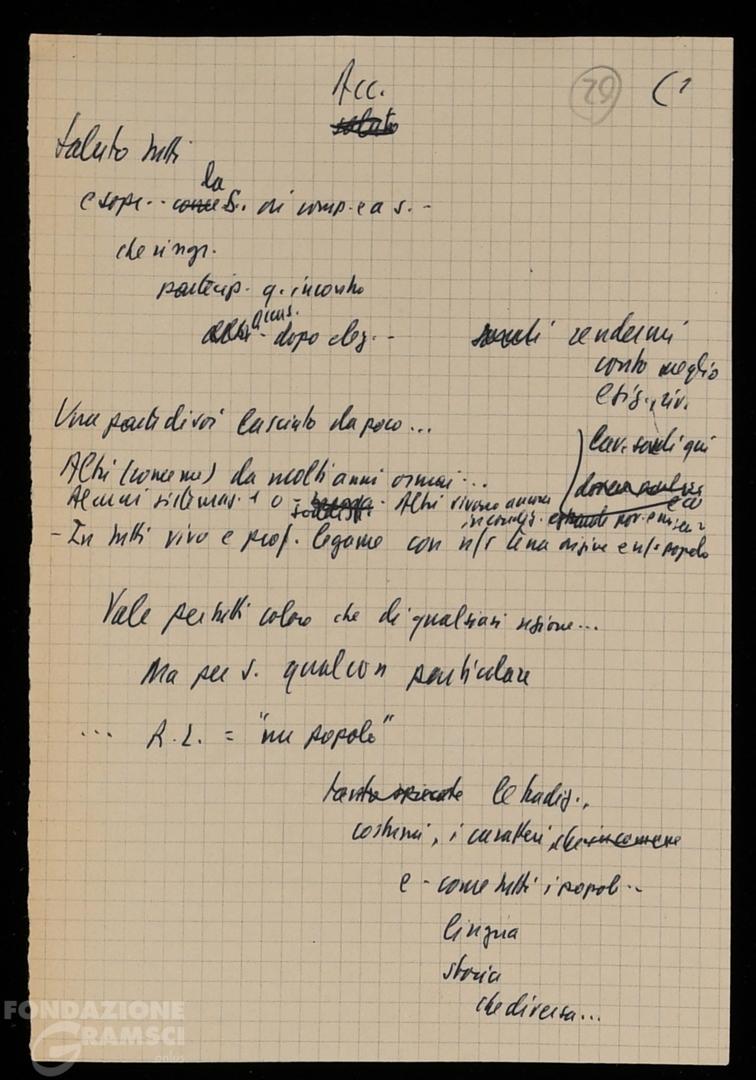 Acc.
29 (1
saluto
Saluto tutti
la
e sopr.. come S. di comp. e a s. -
che ringr.
partecip. q. incontro
altri - dopo elez. -
rendermi
conto meglio
esig., riv.
Una parte di voi lasciato da poco...
lav. sardi qui
Altri (concerne) da molti anni ormai...
Alcuni sistemas. + o - Altri vivono ancora
- In tutti vivo e prof. legame con n/s terra origine e n/s popolo
Vale per tutti coloro che di qualsiasi regione...
Ma per s. qualcosa particolare
... R.L. = "nu popolo"
le tradiz.,
costumi, i caratteri, che
e - come tutti i popoli..
lingua
storia
che diversa...
FONDAZIONE
GRAMSCI
onlus